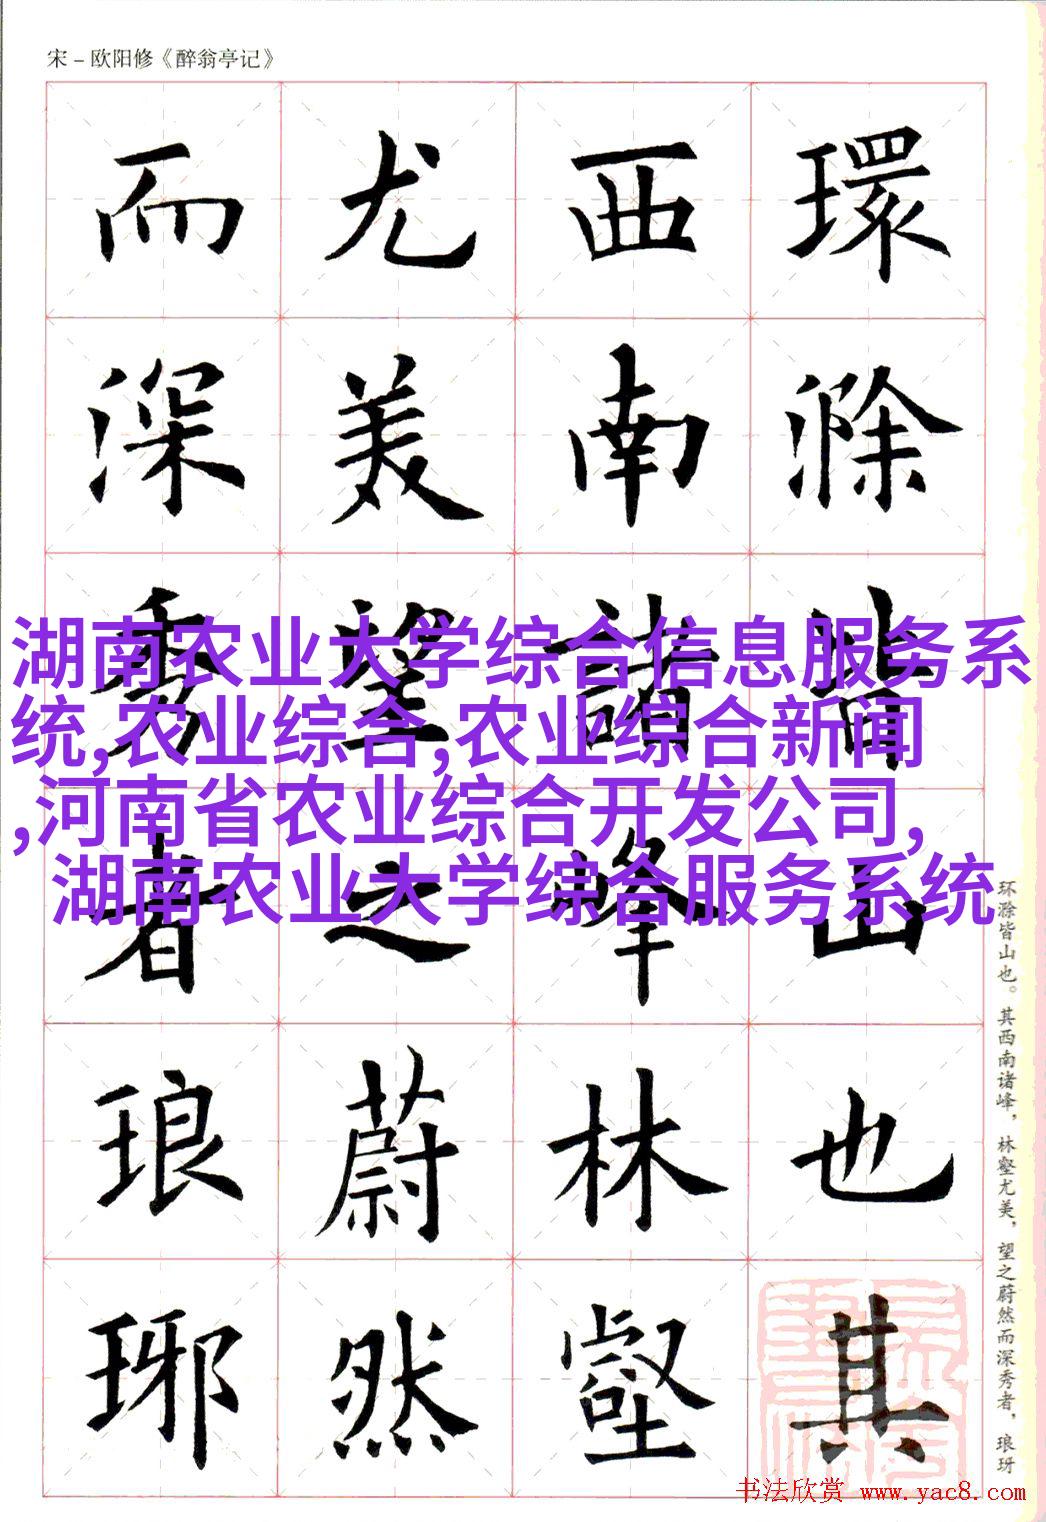 宋－欧阳修《醉翁亭记》
環滁皆山也其
西南諸峰林壑
尤美望之蔚然
而深秀者琅琊
湖南农业大学综合信息服务系
统,农业综合,农业综合新闻
,河南省农业综合开发公司,
湖南农业大学综合服务系统
环滁皆山也。其西南诸峰，林壑尤美，望之蔚然而深秀者，琅玡
书法欣赏 www.yac8.com